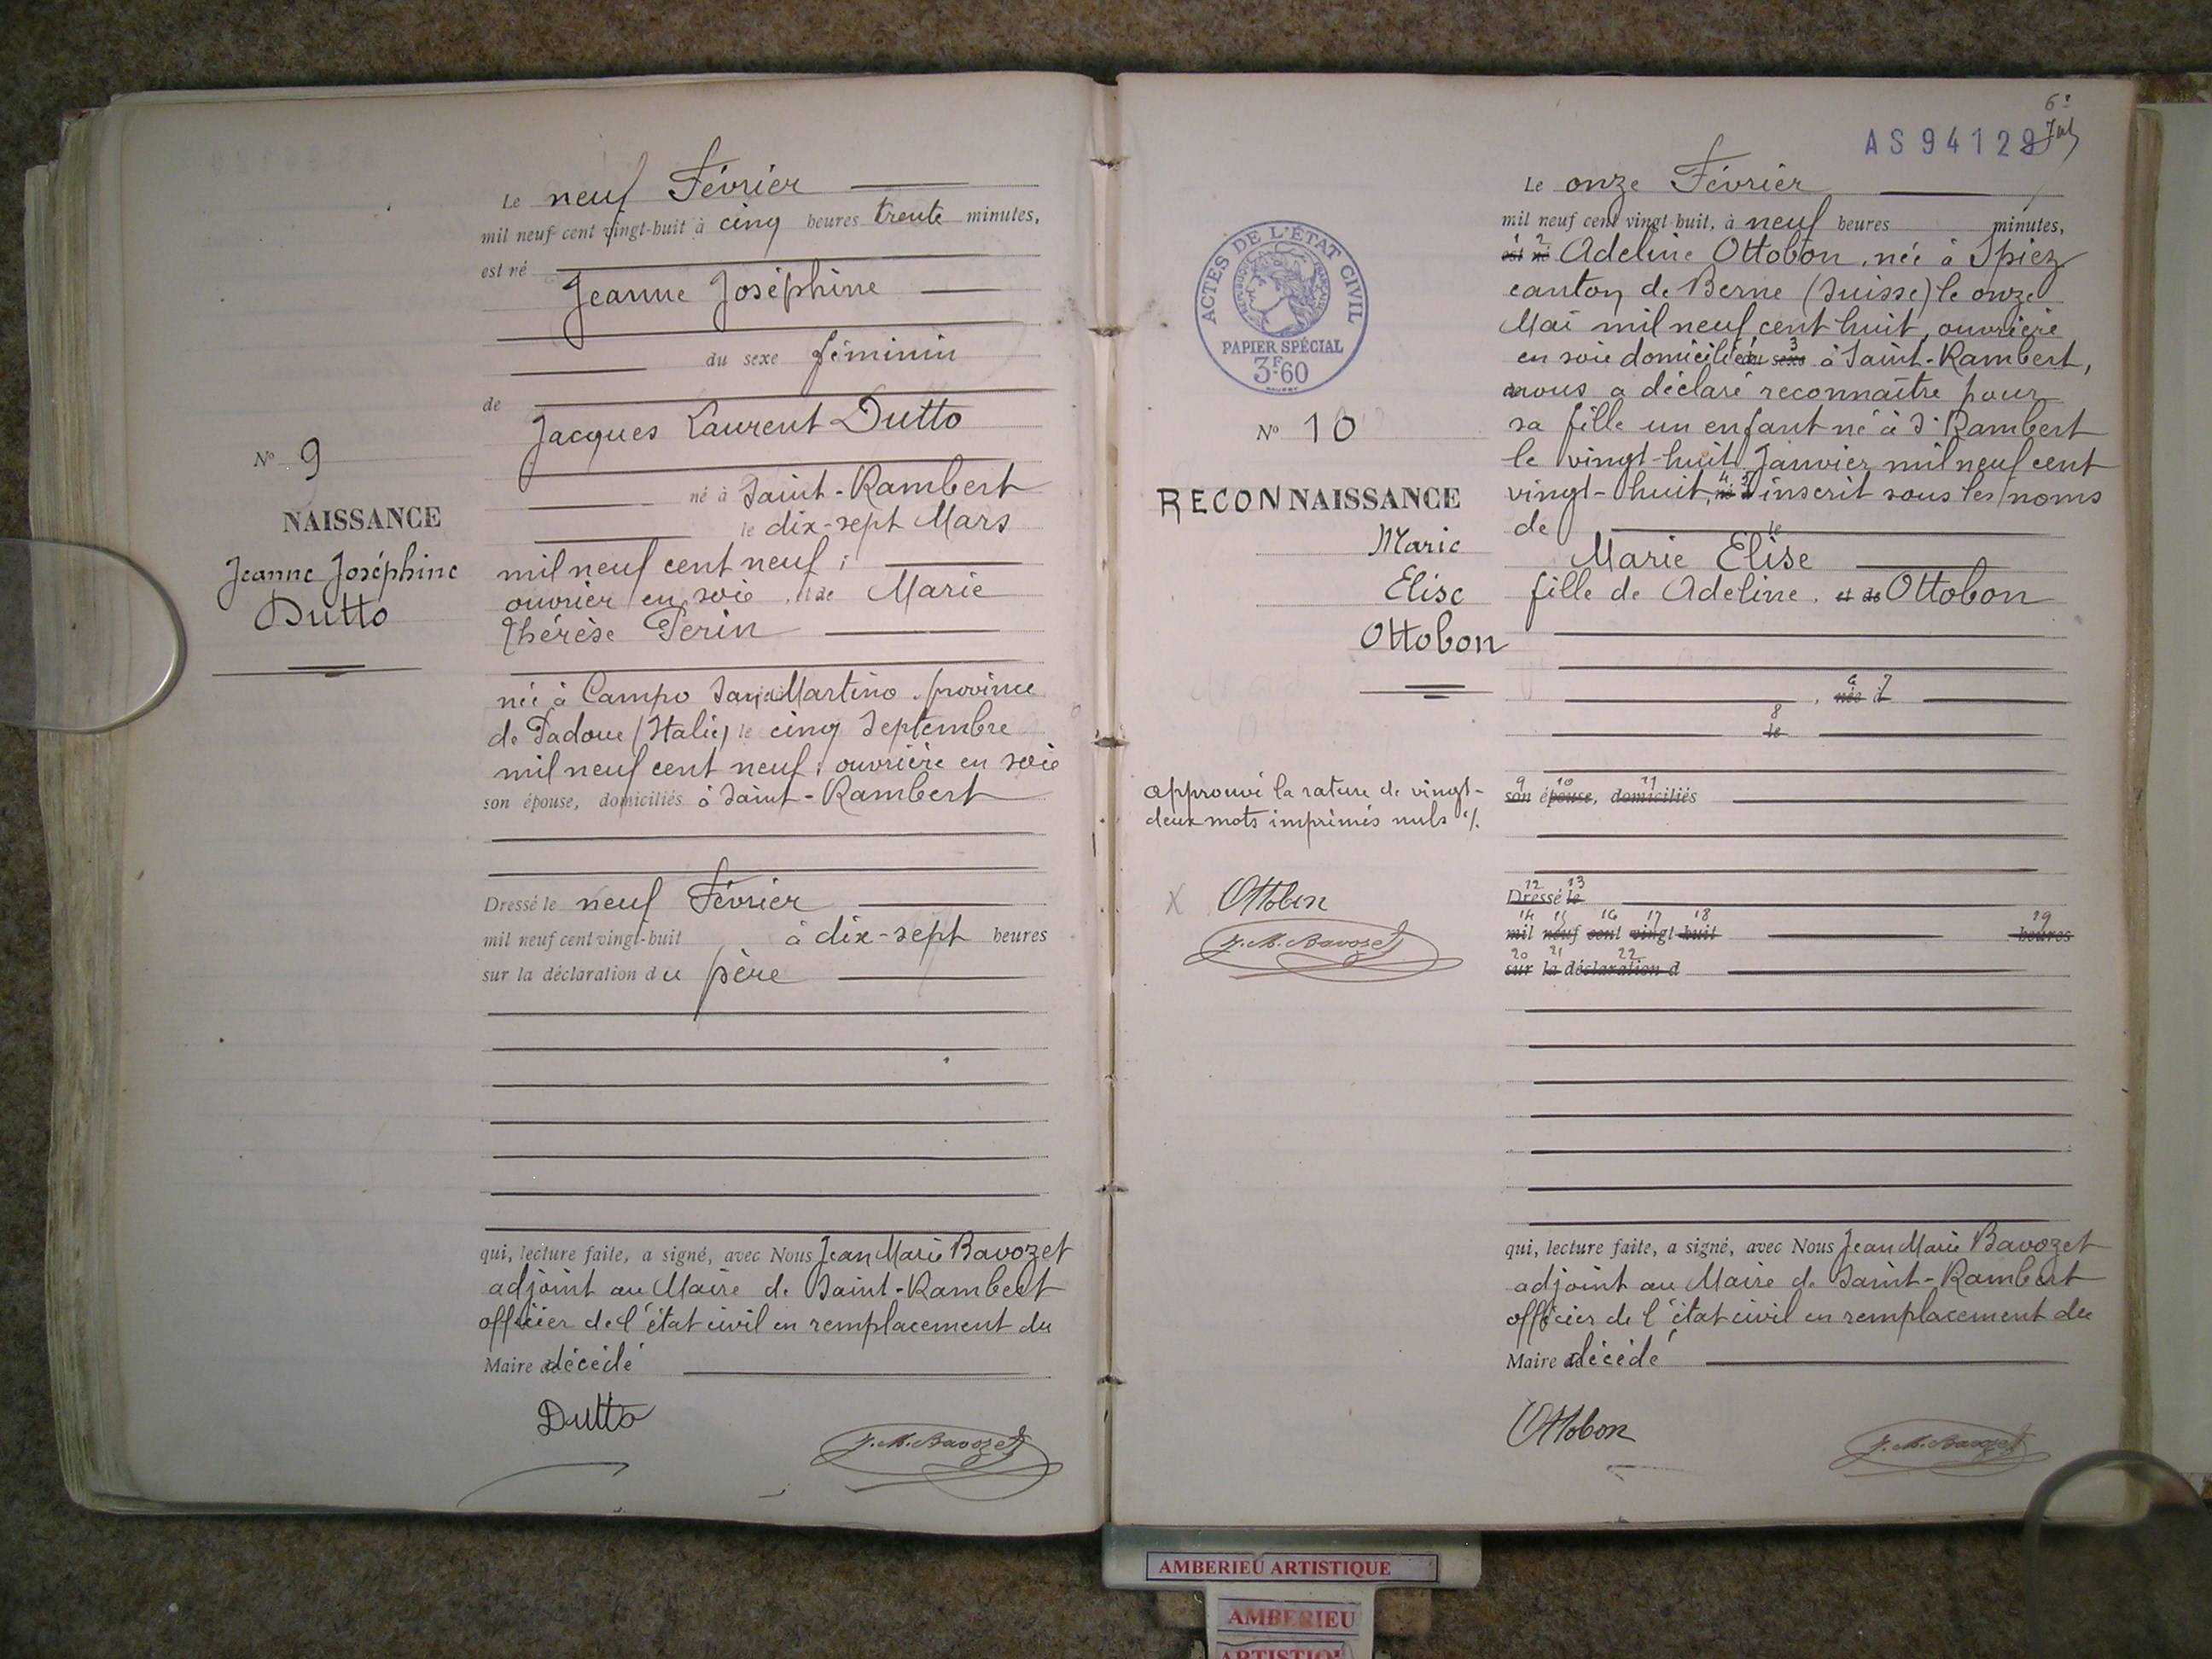 Le neuf Février
mil neuf cent vingt-huit à cinq heures trente minutes,
est né
Jeanne Joséphine
du sexe féminin
de
Jacques Laurent Dutto
né à Saint-Rambert
le dix-sept Mars
mil neuf cent neuf ;
ouvrier en soie, et de Marie
Thérèse Perin
née à Campo San Martino, province
de Padoue (Italie) le cinq Septembre
mil neuf cent neuf ; ouvrière en soie
son épouse, domiciliés à Saint-Rambert
Dressé le neuf Février
mil neuf cent vingt-huit à dix-sept heures
sur la déclaration du père
qui, lecture faite, a signé, avec Nous Jean Marie Bavozet
adjoint au Maire de Saint-Rambert
officier de l'état civil en remplacement du
Maire décédé
Dutto
J.M. Bavozet
N° 9
NAISSANCE
Jeanne Joséphine
Dutto
6e
AS 94129
ACTES DE L'ÉTAT CIVIL
RÉPUBLIQUE FRANÇAISE
PAPIER SPÉCIAL
3F.60
N° 10
RECONNAISSANCE
Marie
Elise
Ottobon
approuvé la rature de vingt-
deux mots imprimés nuls ./.
Ottobon
J.M. Bavozet
Le onze Février
mil neuf cent vingt huit, à neuf heures minutes,
1 2
est né Adeline Ottobon, née à Spiez
canton de Berne (Suisse) le onze
Mai mil neuf cent huit, ouvrière
3
en soie domiciliée du sexe à Saint-Rambert,
nous a déclaré reconnaître pour
sa fille un enfant né à St Rambert
le vingt-huit Janvier mil neuf cent
4 5
vingt-huit, né à inscrit sous les noms
de
le
Marie Elise
fille de Adeline, et de Ottobon
6 7
, née à
8
le
9 10 11
son épouse, domiciliés
12 13
Dressé le
14 15 16 17 18 19
mil neuf cent vingt huit heures
20 21 22
sur la déclaration d
qui, lecture faite, a signé, avec Nous Jean Marie Bavozet
adjoint au Maire de Saint-Rambert
officier de l'état civil en remplacement du
Maire décédé
Ottobon
J.M. Bavozet
AMBERIEU ARTISTIQUE
AMBERIEU
ARTISTIQU